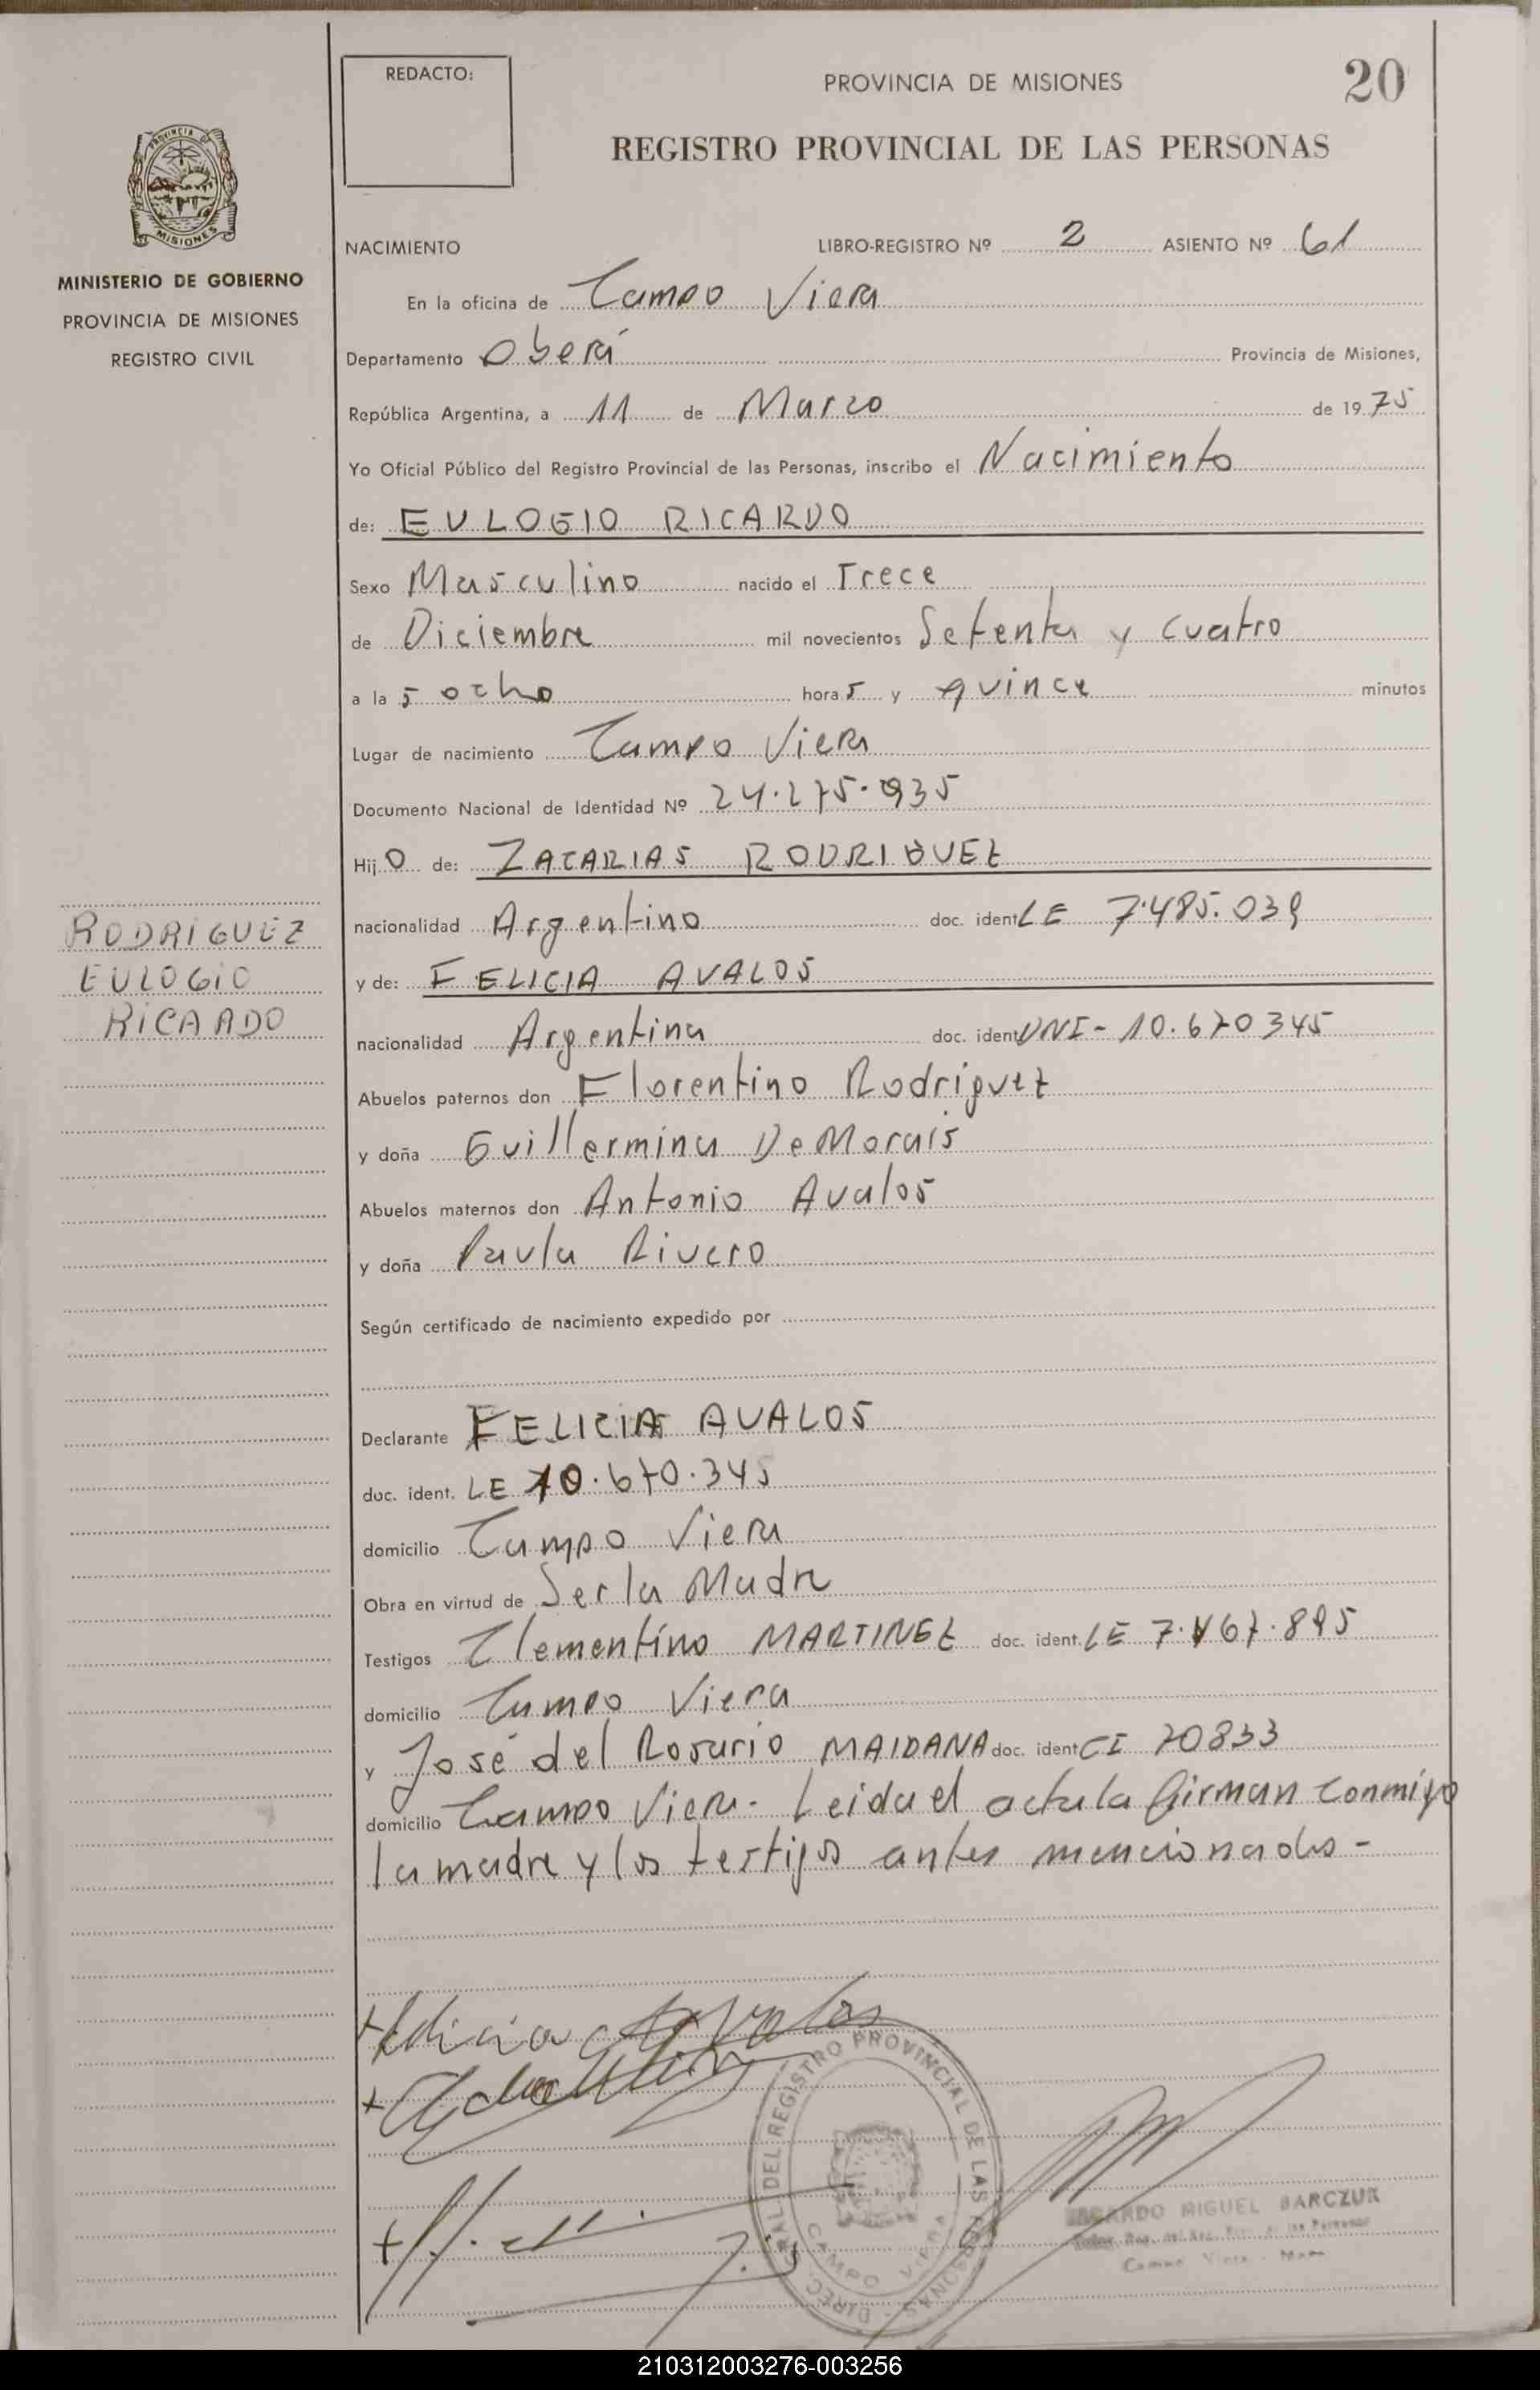 REDACTO:
PROVINCIA DE MISIONES
20
REGISTRO PROVINCIAL DE LAS PERSONAS
PROVINCIA
MISIONES
MINISTERIO DE GOBIERNO
PROVINCIA DE MISIONES
REGISTRO CIVIL
NACIMIENTO LIBRO-REGISTRO Nº 2 ASIENTO Nº 61
En la oficina de Campo Viera
Departamento Oberá Provincia de Misiones,
República Argentina, a 11 de Marzo de 1975
Yo Oficial Público del Registro Provincial de las Personas, inscribo el Nacimiento
de: EULOGIO RICARDO
Sexo Masculino nacido el Trece
de Diciembre mil novecientos Setenta y cuatro
a la s ocho hora s y quince minutos
Lugar de nacimiento Campo Viera
Documento Nacional de Identidad Nº 24.275.935
Hij o de: ZACARIAS RODRIGUEZ
nacionalidad Argentino doc. ident LE 7.485.039
y de: FELICIA AVALOS
nacionalidad Argentina doc. ident DNI- 10.670345
RODRIGUEZ
EULOGIO
RICARDO
Abuelos paternos don Florentino Rodriguez
y doña Guillermina De Morais
Abuelos maternos don Antonio Avalos
y doña Paula Rivero
Según certificado de nacimiento expedido por
Declarante FELICIA AVALOS
doc. ident. LE 10.670.345
domicilio Campo Viera
Obra en virtud de Ser la Madre
Testigos Clementino MARTINEZ doc. ident. LE 7.467.895
domicilio Campo Viera
y José del Rosario MAIDANA doc. ident CI 70833
domicilio Campo Viera. Leida el acta la firman conmigo
la madre y los testigos antes mencionados -
Felicia Avalos
DIREC. GRAL. DEL REGISTRO PROVINCIAL DE LAS PERSONAS
CAMPO VIERA
MIGUEL BARCZUK
Campo Viera - Mnes
210312003276-003256